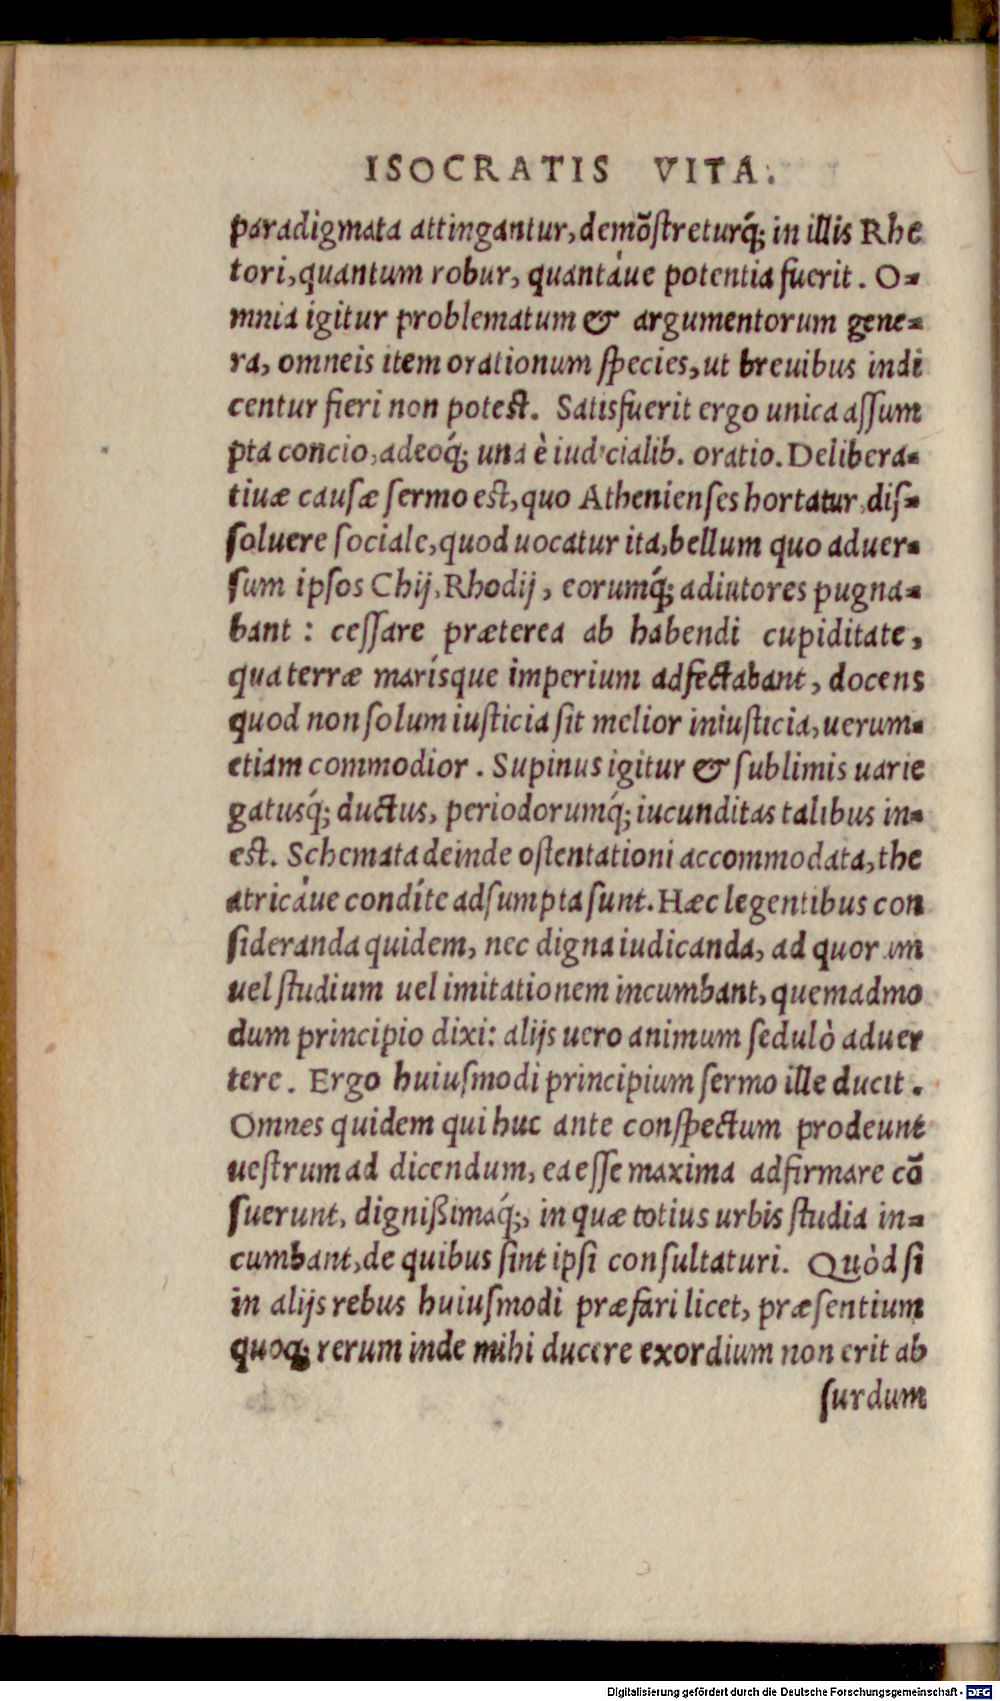 ISOCRATIS VITA.
paradigmata attingantur, demõſtreturq́; in illis Rhe
tori, quantum robur, quantáue potentia fuerit. O-
mnia igitur problematum & argumentorum gene-
ra, omneis item orationum ſpecies, ut breuibus indi
centur fieri non poteſt. Satisfuerit ergo unica aſſum
pta concio, adeoq́; una è iudicialib. oratio. Delibera-
tiuæ cauſæ ſermo eſt, quo Athenienſes hortatur diſ-
ſoluere ſociale, quod uocatur ita, bellum quo aduer-
ſum ipſos Chij, Rhodij, eorumq́; adiutores pugna-
bant: ceſſare præterea ab habendi cupiditate,
qua terræ marísque imperium adfectabant, docens
quod non ſolum iuſticia ſit melior iniuſticia, uerum-
etiam commodior. Supinus igitur & ſublimis uarie
gatusq́; ductus, periodorumq́; iucunditas talibus in-
eſt. Schemata deinde oſtentationi accommodata, the
atricáue condíte adſumpta ſunt. Hæc legentibus con
ſideranda quidem, nec digna iudicanda, ad quorum
uel ſtudium uel imitationem incumbant, quemadmo
dum principio dixi: alijs uero animum ſedulò aduer
tere. Ergo huiuſmodi principium ſermo ille ducit.
Omnes quidem qui huc ante conſpectum prodeunt
ueſtrum ad dicendum, ea eſſe maxima adfirmare cõ
ſuerunt, digniſsimaq́;, in quæ totius urbis ſtudia in-
cumbant, de quibus ſint ipſi conſultaturi. Quòd ſi
in alijs rebus huiuſmodi præfari licet, præſentium
quoq; rerum inde mihi ducere exordium non erit ab
ſurdum
Digitalisierung gefördert durch die Deutsche Forschungsgemeinschaft - DFG